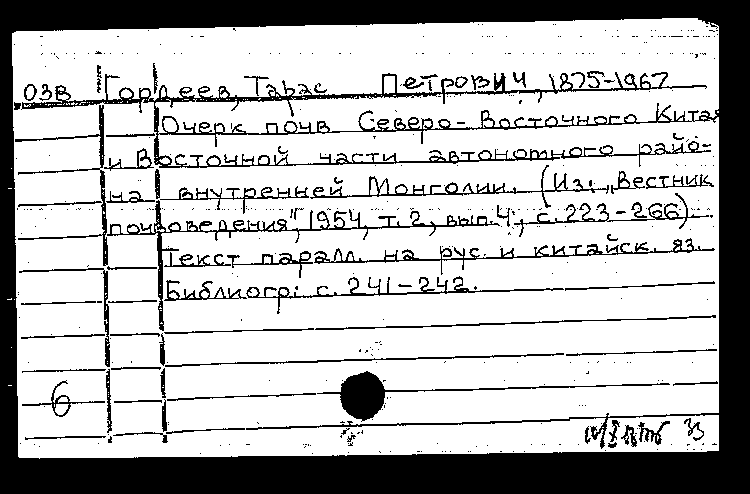 ОЗВ Гордеев, Тарас Петрович, 1875-1967
Очерк почв Северо-Восточного Китая
и Восточной части автономного райо-
на внутренней Монголии. (Из: „Вестник
почвоведения", 1954, т. 2, вып. 4, с. 223-266)
Текст паралл. на рус. и китайск. яз.
Библиогр: с. 241-242.
6